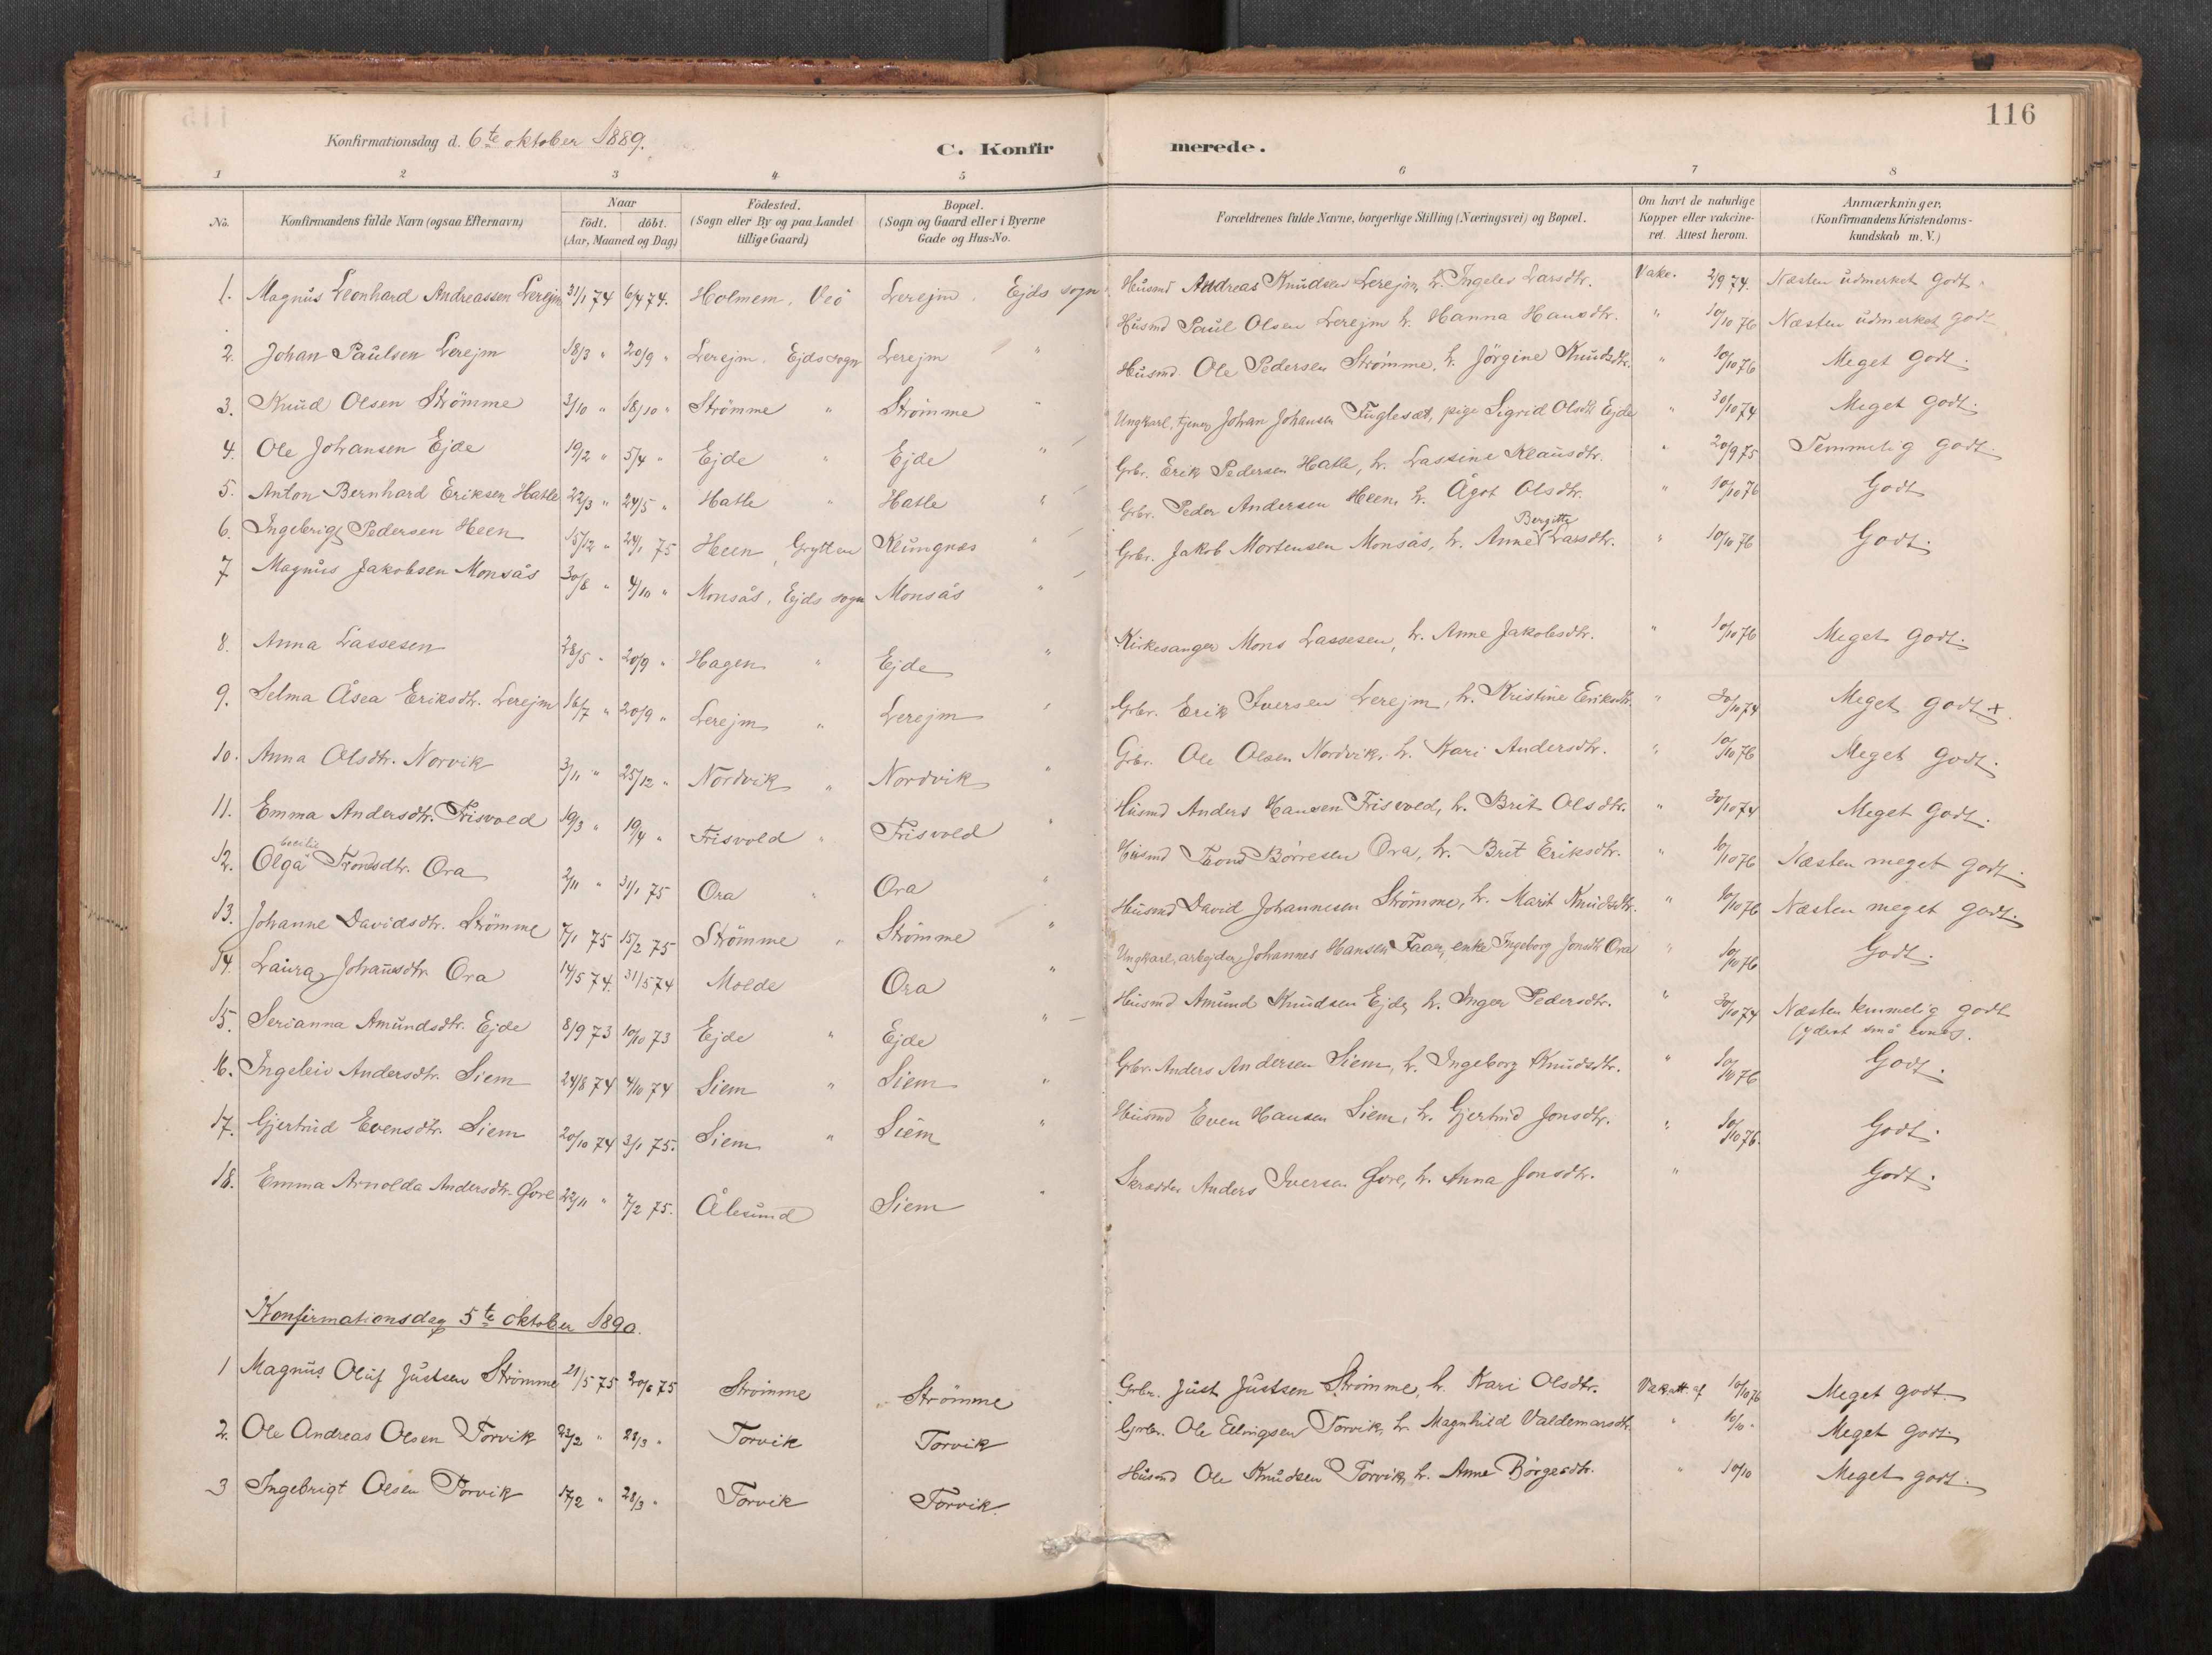 116
Konfirmationsdag d. 6te oktober 1889.
C. Konfirmerede.
1 2 3 4 5 6 7 8
No. Konfirmandens fulde Navn (ogsaa Efternavn) Naar födt. döbt. (Aar, Maaned og Dag) Födested. (Sogn eller By og paa Landet tillige Gaard) Bopæl. (Sogn og Gaard eller i Byerne Gade og Hus-No. Forældrenes fulde Navne, borgerlige Stilling (Næringsvei) og Bopæl. Om havt de naturlige Kopper eller vakcineret. Attest herom. Anmærkninger, (Konfirmandens Kristendomskundskab m. V.)
1. Magnus Leonhard Andreassen Lerejm 31/1 74 6/4 74. Holmem, Veö Lerejm. Ejds sogn Husmd Andreas Knudsen Lerejm, h. Ingelev Larsdtr. Vakc. 2/9 74. Næsten udmerket godt.
2. Johan Paulsen Lerejm 18/3 " 20/9 " Lerejm. Ejds sogn Lerejm " Husmd Paul Olsen Lerejm h. Hanna Hansdtr. " 10/10 76 Næsten udmerket godt
3. Knud Olsen Strömme 3/10 " 18/10 " Strömme " Strömme " Husmd. Ole Pedersen Strömme, h. Jörgine Knudsdtr. " 10/10 76 Meget godt.
4. Ole Johansen Ejde 19/2 " 5/4 " Ejde " Ejde " Ungkarl, tjener Johan Johansen Fuglesæt, pige Sigrid Olsdtr Ejde " 30/10 74 Meget godt.
5. Anton Bernhard Eriksen Hatle 22/3 " 24/5 " Hatle " Hatle " Grbr. Erik Pedersen Hatle, h. Lassine Klausdtr. " 20/9 75 Temmelig godt.
6. Ingebrigt Pedersen Heen 15/12 " 24/1 75 Heen, Grytten Klungnæs " Grbr. Peder Andersen Heen, h. Ågot Olsdtr. " 10/10 76 Godt
7 Magnus Jakobsen Monsås 30/8 " 4/10 " Monsås, Ejds sogn Monsås " Grbr. Jakob Mortensen Monsås, h. Anne Bergitte Larsdtr. " 10/10 76 Godt.
8. Anna Lassesen 28/5 " 20/9 " Hagen " Ejde " Kirkesanger Mons Lassesen, h. Anne Jakobsdtr. " 10/10 76 Meget godt.
9. Selma Åsea Eriksdtr. Lerejm 16/7 " 20/9 " Lerejm " Lerejm " Grbr. Erik Iversen Lerejm, h. Kristine Eriksdtr. " 30/10 74 Meget godt x.
10. Anna Olsdtr. Norvik 3/11 " 25/12 " Nordvik " Nordvik " Grbr. Ole Olsen Nordvik, h. Kari Andersdtr. " 10/10 76 Meget godt.
11. Emma Andersdtr. Frisvold 19/3 " 19/4 " Frisvold " Frisvold " Husmd Anders Hansen Frisvold, h. Brit Olsdtr. " 30/10 74 Meget godt.
12. Olga Cecilie Trondsdtr. Ora 2/11 " 31/1 75 Ora " Ora " Husmd Trond Börresen Ora, h. Brit Eriksdtr. " 10/10 76 Næsten meget godt.
13. Johanne Davidsdtr. Strömme 7/1 75 15/2 75 Strömme " Strömme Husmd David Johannesen Strömme, h. Marit Knudsdtr. " 10/10 76 Næsten meget godt.
14. Laura Johansdtr. Ora 14/5 74. 31/5 74 Molde Ora " Ungkarl, arbejder, Johannes Hansen Taar, enke Ingeborg Jonsdtr Ora " 10/10 76 Godt.
15. Serianna Amundsdtr. Ejde 8/9 73 10/10 73 Ejde " Ejde " Husmd Amund Knudsen Ejde, h. Inger Pedersdtr. " 30/10 74 Næsten temmelig godt (yderst små evner).
16. Ingeleiv Andersdtr. Siem 24/8 74 4/10 74 Siem " Siem " Grbr. Anders Andersen Siem, h. Ingeborg Knudsdtr. " 10/10 76 Godt.
17. Gjertrud Evensdtr. Siem 20/10 74 3/1 75. Siem " Siem " Husmd Even Hansen Siem, h. Gjertrud Jonsdtr. " 10/10 76. Godt.
18. Emma Arnolda Andersdtr. Gøre 22/11 " 7/2 75. Ålesund Siem " Skrædder Anders Iversen Gøre, h. Anna Jonsdtr. " Godt.
Konfirmationsdag 5te oktober 1890.
1 Magnus Oluf Justsen Strömme 21/5 75 20/6 75 Strömme Strömme Grbr. Just Justsen Strömme, h. Kari Olsdtr. Vak.att. af 10/10 76 Meget godt
2. Ole Andreas Olsen Torvik 23/2 " 28/3 " Torvik Torvik Grbr. Ole Ellingsen Torvik, h. Magnhild Valdemarsdtr. " 10/10 " Meget godt.
3 Ingebrigt Olsen Torvik 17/2 " 28/3 " Torvik Torvik. Husmd Ole Knudsen Torvik, h. Anne Börgesdtr. " 10/10 Meget godt.